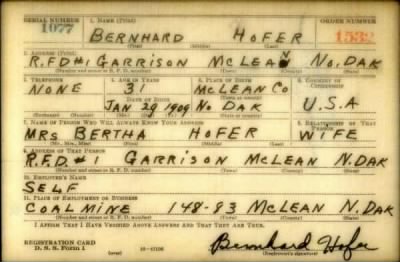 SERIAL NUMBER 1. NAME (Print) ORDER NUMBER
1077 BERNHARD HOFER 1532
(First) (Middle) (Last)
2. ADDRESS (Print)
R.F.D #1 GARRISON MCLEAN NO. DAK
(Number and street or R. F. D. number) (Town) (County) (State)
3. TELEPHONE 4. AGE IN YEARS 5. PLACE OF BIRTH 6. COUNTRY OF CITIZENSHIP
NONE 31 MCLEAN CO
DATE OF BIRTH
JAN 29 1909 NO DAK U.S.A
(Exchange) (Number) (Mo.) (Day) (Yr.) (State or country)
7. NAME OF PERSON WHO WILL ALWAYS KNOW YOUR ADDRESS 8. RELATIONSHIP OF THAT PERSON
MRS BERTHA HOFER WIFE
(Mr., Mrs., Miss) (First) (Middle) (Last)
9. ADDRESS OF THAT PERSON
R.F.D. #1 GARRISON MCLEAN N.DAK
(Number and street or R. F. D. number) (Town) (County) (State)
10. EMPLOYER'S NAME
SELF
11. PLACE OF EMPLOYMENT OR BUSINESS
COAL MINE 148-83 MCLEAN N.DAK
(Number and street or R. F. D. number) (Town) (County) (State)
I AFFIRM THAT I HAVE VERIFIED ABOVE ANSWERS AND THAT THEY ARE TRUE.
REGISTRATION CARD
D. S. S. Form 1 (over) Bernhard Hofer
(Registrant's signature)